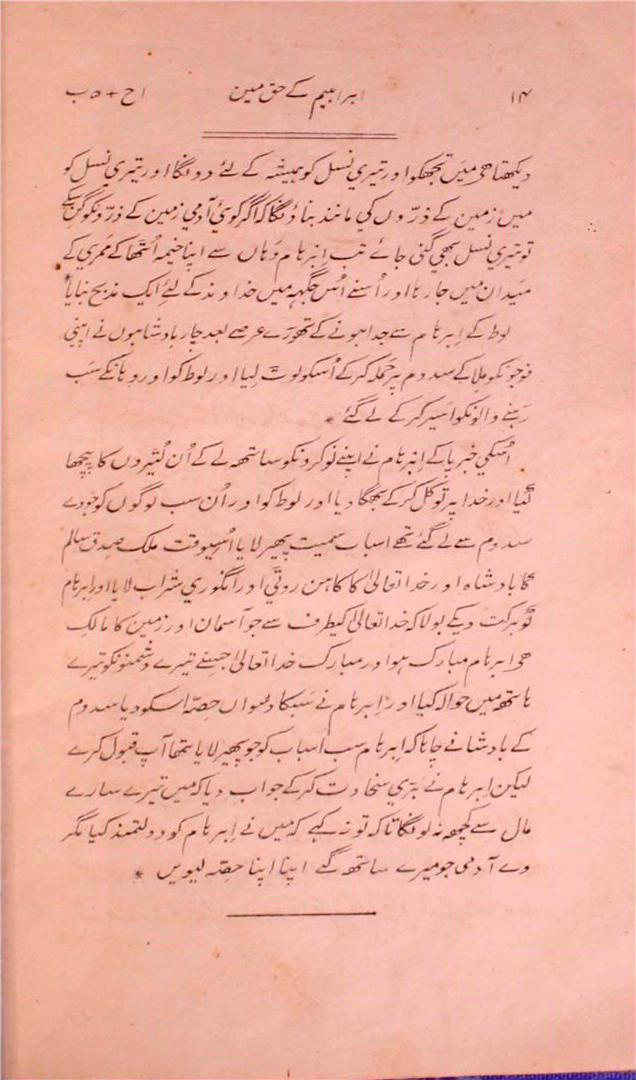 ۱۴ ابراہیم کے حق مین ۱ح + ۵ب
دیکھتا هی مَین تجھکو اور تیری نسل کو ہمیشہ کے لئے دونگا اور تیری نسل کو
میں زمین کے ذرّوں کی مانند بناؤنگا کہ اگر کوئی آدمی زمین کے ذرّونکو گن سکے
تو تیری نسل بھی گنی جائے تب اِبرہام وہاں سے اپنا خیمہ اُٹھا کے ممری کے
میدان میں جا رہا اور اُسنے اُس جگہہ میں خداوند کے لئے ایک مذبح بنایا *
لوط کے اِبرہام سے جدا ہونے کے تھوڑے عرصے بعد چار بادشاہوں نے اپنی
فوجونکو ملا کے سدوم پر حملہ کر کے اُسکو لوٹ لیا اور لوط کو اور وہانکے سَب
رہنے والونکو اسیر کر کے لے گئے *
اُسکی خبر پا کے اِبرہام نے اپنے نوکرونکو ساتھہ لے کے اُن لُٹیروں کا پیچھا
کیا اور خدا پر توکّل کر کے بھگا دیا اور لوط کو اور اُن سب لوگوں کو جو وے
سدوم سے لے گئے تھے اسباب سمیت پھیر لایا اُسیوقت ملک صدق سالم
کا بادشاہ اور خدا تعالیٰ کا کاہن روٹی اور انگوری شراب لایا اور اِبرہام
کو برکت دیکے بولا کہ خدا تعالیٰ کیطرف سے جو آسمان اور زمین کا مالک
هی اِبرہام مبارک ہو اور مبارک خدا تعالیٰ جسنے تیرے دشمنونکو تیرے
ہاتھہ میں حوالہ کیا اور اِبرہام نے سَبکا دسواں حِصّہ اسکو دیا سدوم
کے بادشا نے چاہا کہ اِبرہام سب اَسباب کو جو پھیر لایا تھا آپ قبول کرے
لیکن اِبرہام نے بڑی سخاوت کر کے جواب دیا کہ میں تیرے سارے
مال سے کچھہ نہ لونگا تا کہ تو نہ کہے کہ میں نے اِبرہام کو دولتمند کیا مگر
وے آدمی جو میرے ساتھہ گئے اپنا اپنا حِصّہ لیویں *